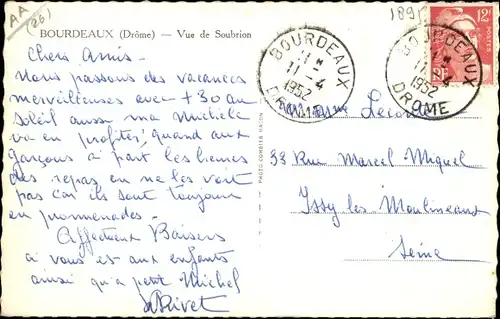 AA
(26)
BOURDEAUX (Drôme) — Vue de Soubrion
189
12F
BOURDEAUX
11-4
1952
DROME
BOURDEAUX
11
1952
DROME
Chers Amis -
Nous passons des vacances
merveilleuses avec + 30 au
soleil aussi ma Michele
va en profiter quand aux
garçons à part les heures
des repas en ne les voit
pas car ils sont toujours
en promenades -
Affectueux Baisers
à vous et aux enfants
ainsi qu'à petit Michel
Rivet
PHOTO COMBIER MACON
33 Rue Marcel Miquel
Issy les Moulineaux
Seine